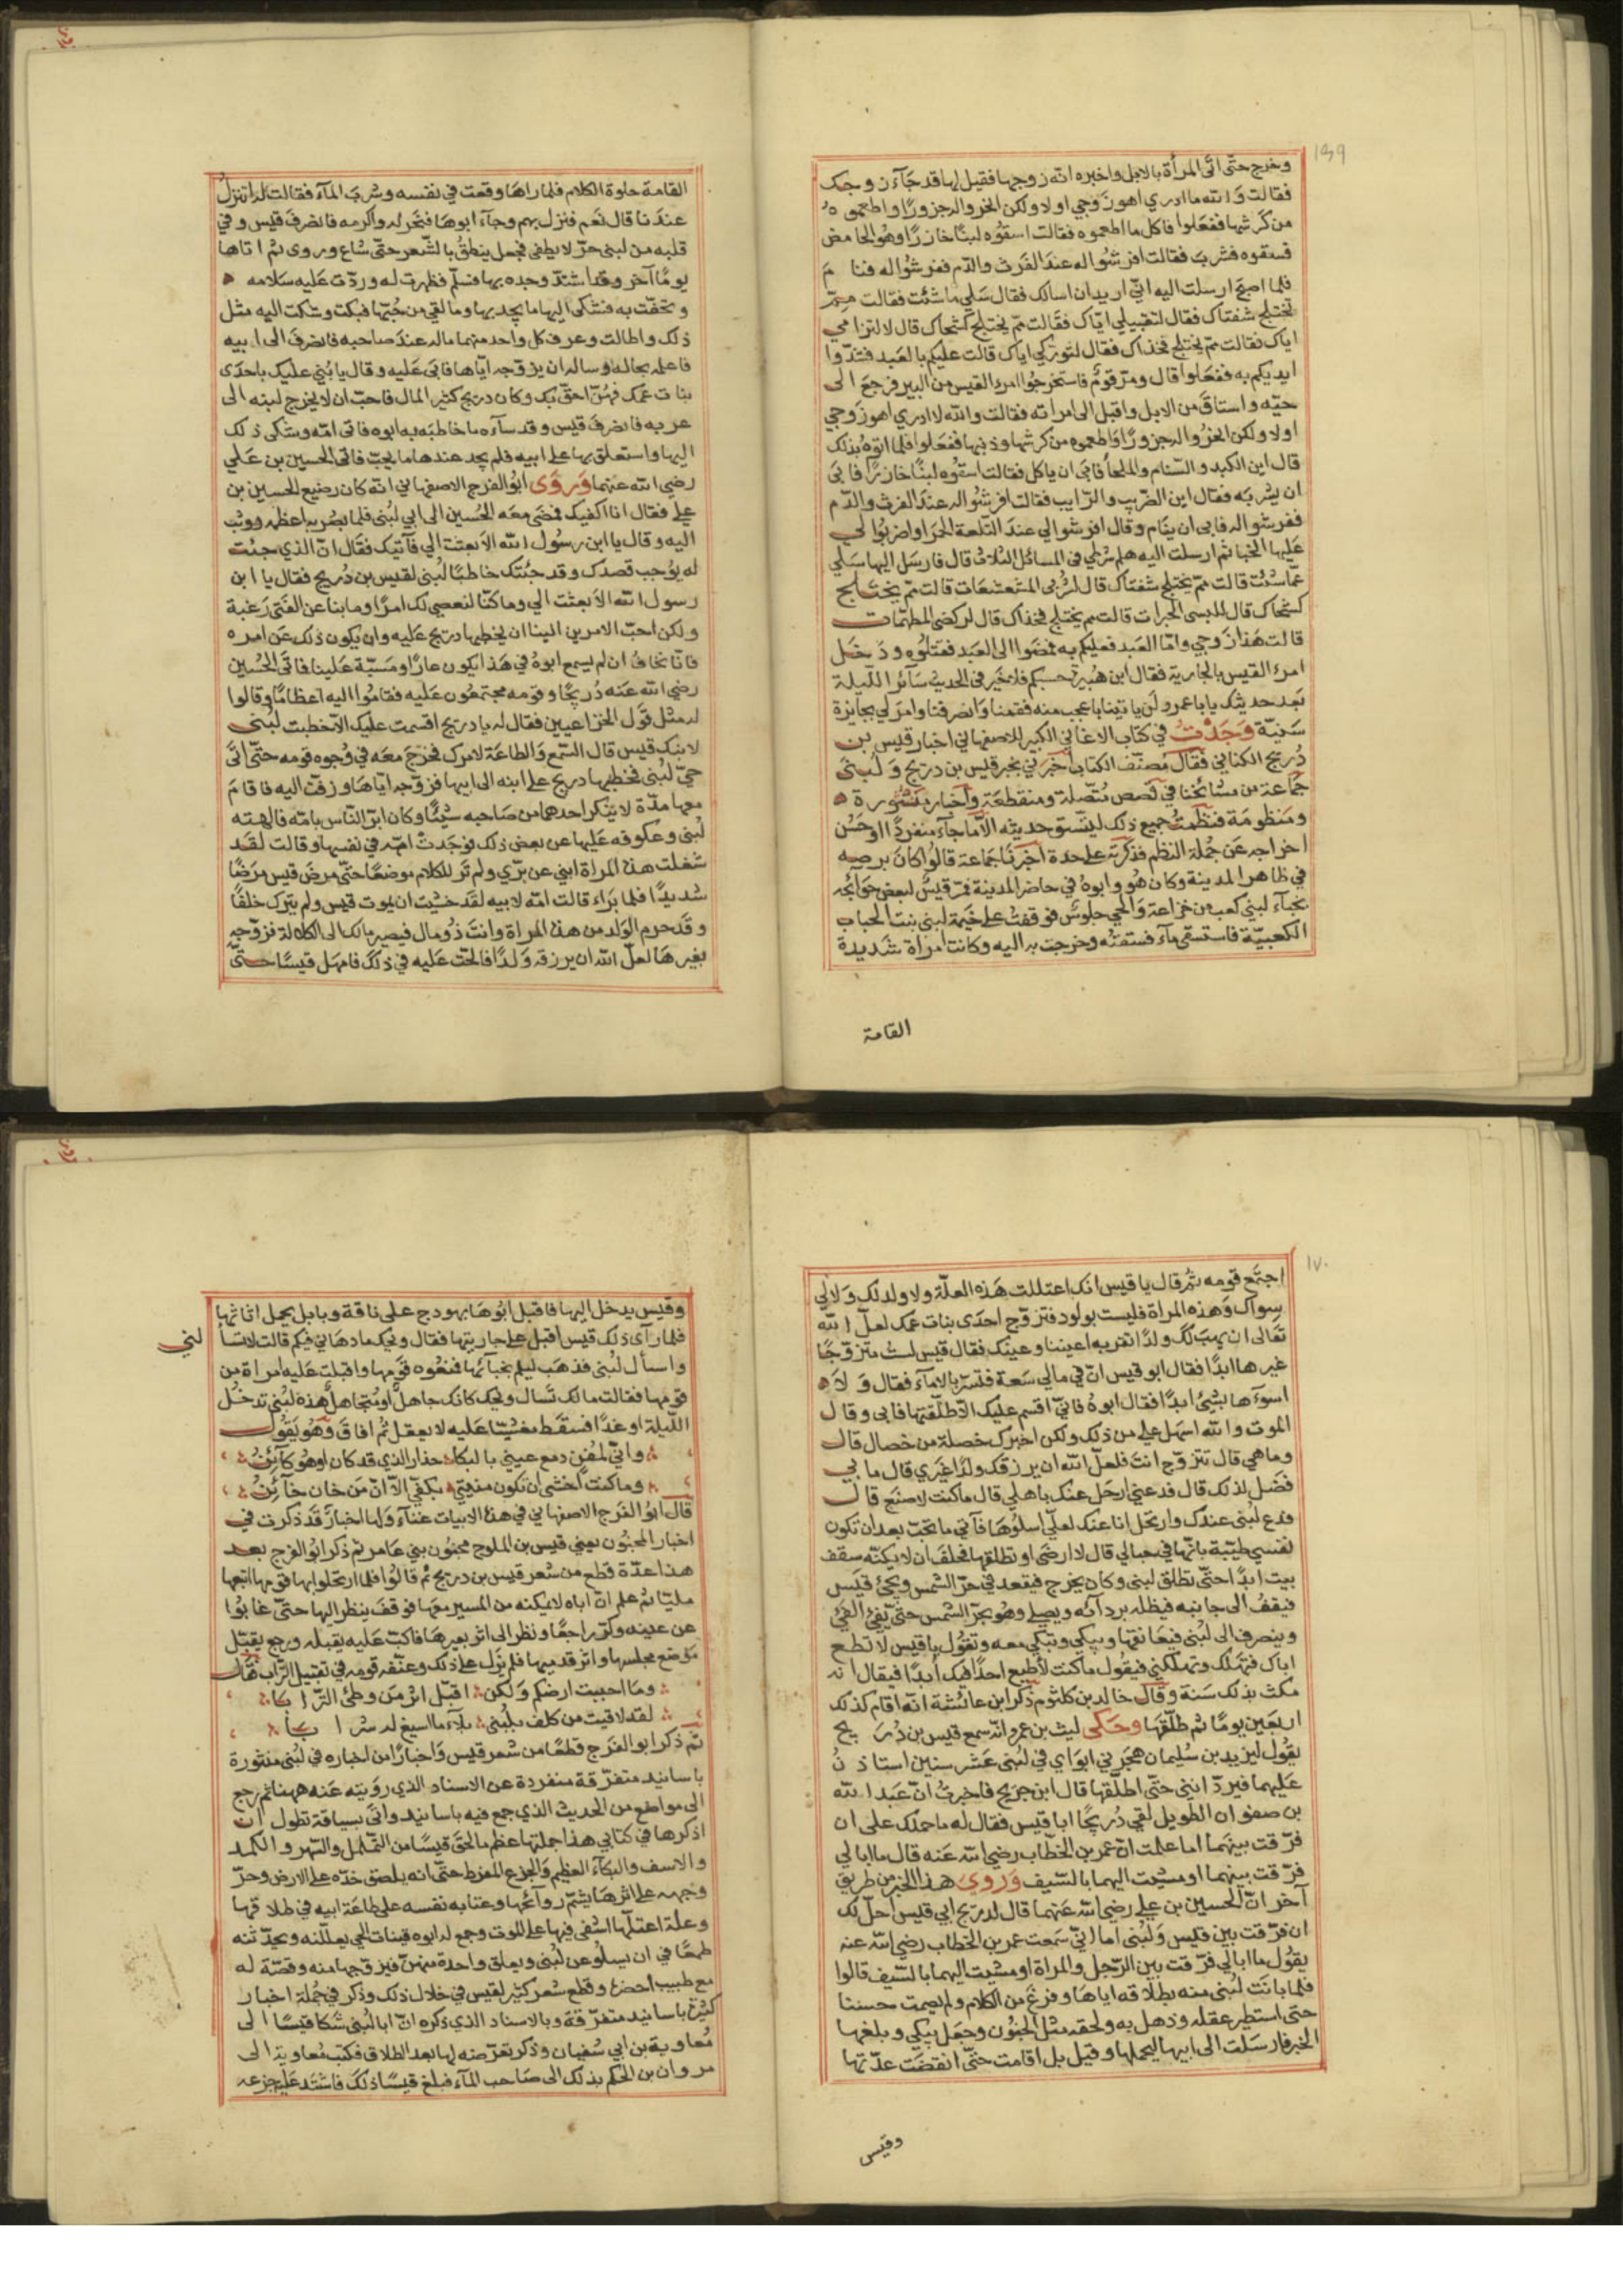 ١٦٩
وخرج حتّى اتى المرأة بالابل واخبره انّه زوجها فقيل لها قد جآء زوجك
فقالت والله ما ادري اهو زوجي اولا ولكن انحروا له جزورًا واطعموه
من كرشها ففعلوا فاكل ما اطعموه فقالت اسقوه لبنًا خازرًا وهو الحامض
فسقوه فشرب فقالت افرشوا له عند الفرث والدّم ففرشوا له فنام
فلما اصبح ارسلت اليه انّي اريد ان اسالك فقال سلي ما شئت فقالت ممّ
تختلج شفتاك فقال لتقبيلي ايّاك فقالت ممّ يختلج كشحاك قال لالتزامي
اياك فقالت ممّ يختلج فخذاك فقال لتوركي اياك قالت عليكم بالعبد فشدّوا
ايديكم به ففعلوا قال ومرّ قوم فاستخرجوا امرء القيس من البير فرجع الى
حيّه واستاق من الابل واقبل الى امراته فقالت والله لا ادري اهو زوجي
اولا ولكن انحروا له جزورًا واطعموه من كرشها وذنبها ففعلوا فلما اتوه بذلك
قال اين الكبد والسّنام والملحا فابى ان ياكل فقالت اسقوه لبنًا خازرًا فابى
ان يشربه فقال اين الضّريب والرّايب فقالت افرشوا له عند الفرث والدّم
ففرشوا له فابى ان ينام وقال افرشوا لي عند التلعة الحمرا واضربوا لي
عليها الخبا ثم ارسلت اليه هلم شرطي في المسائل الثلاث قال فارسل اليها سلي
عمّا شئت قالت ممّ يختلج شفتاك قال لشربي المشعشعات قالت ممّ يختلج
كشحاك قال للبسي الحبرات قالت مم يختلج فخذاك قال لركضي المطهّمات
قالت هذا زوجي وامّا العبد فعليكم به فمضوا الى العبد فقتلوه ودخل
امرؤ القيس بالجارية فقال ابن هبيرة حسبكم فلا خير في الحديث سآئر اللّيلة
بعد حديثك يابا عمرو لن ياتينا باعجب منه فقمنا وانصرفنا وامر لي بجايزة
سنيّة وجدت في كتاب الاغاني الكبير للاصفهاني اخبار قيس بن
ذريح الكناني فقال مصنّف الكتاب اخبرني بخبر قيس بن دريح ولبنى
جماعة من مشائخنا في قصص متّصلة ومنقطعة واخبار منثورة
ومنظومة فنظمت جميع ذلك ليتّسق حديثه الاّ ما جآء منفردًا او حسن
اخراجه عن جملة النظم فذكرته على حدة اخبرنا جماعة قالوا كان برصيه
في ظاهر المدينة وكان هو وابوه في حاضر المدينة فمرّ قيس لبعض حوائجه
بخبآء لبني كعب من خزاعة والحي جلوس فوقفت على خيمة لبنى بنت الحباب
الكعبيّة فاستسقى مآء فسقته وخرجت به اليه وكانت امراة شديدة
القامة
القامة حلوة الكلام فلما راها وقعت في نفسه وشرب المآء فقالت له اتنزل
عندنا قال نعم فنزل بهم وجآء ابوها فنحر له واكرمه فانصرف قيس وفي
قلبه من لبنى حرّ لا يطفى فجعل ينطق بالشّعر حتّى شاع وروى ثم اتاها
يومًا آخر وقد اشتدّ وجده بها فسلّم فظهرت له وردّت عليه سلامه
وتحفّت به فشكى اليها ما يجد بها وما لقي من حُبّها فبكت وشكت اليه مثل
ذلك واطالت وعرف كل واحد منهما ماله عند صاحبه فانصرف الى ابيه
فاعلمه بحاله وساله ان يزوّجه ايّاها فابى عليه وقال يا بُني عليك باحدى
بنات عمّك فهنّ احقّ بك وكان دريح كثير المال فاحبّ ان لا يخرج لبنه الى
غريبه فانصرف قيس وقد سآءه ما خاطبه به ابوه فاتى امّه وشكى ذلك
اليها واستعان بها على ابيه فلم يجد عندها ما يحبّ فاتى الحسين بن علي
رضي الله عنهما وروى ابو الفرج الاصفهاني انّه كان رضيع الحسين بن
علي فقال انا اكفيك فمضى معه الحسين الى ابي لبنى فلما بصر به اعظمه ووثب
اليه وقال يا ابن رسول الله الا بعثت الي فآتيك فقال انّ الذي جئت
له يوجب قصدك وقد جئتك خاطبًا لبنى لقيس بن ذريح فقال يا ابن
رسول الله الا بعثت الي وما كنّا لنعصي لك امرًا وما بنا عن الفتى رغبة
ولكن احبّ الامرين الينا ان يخطبها دريح عليه وان يكون ذلك عن امره
فانّا نخاف ان لم يسع ابوه في هذا يكون عارًا ومسبّة علينا فاتى الحسين
رضي الله عنه ذريحًا وقومه مجتمعون عليه فقاموا اليه اعظامًا وقالوا
له مثل قول الخزاعيين فقال له يا دريح اقسمت عليك الاّ خطبت لبنى
لابنك قيس قال السّمع والطاعة لامرك فخرج معه في وجوه قومه حتّى اتى
حيّ لبنى فخطبها دريح على ابنه الى ابيها فزوّجه ايّاها وزفّت اليه فاقام
معها مدّة لا ينكر احدهما من صاحبه شيئًا وكان ابرّ النّاس بامّه فالهته
لبنى وعكوفه عليها عن بعض ذلك فوجدت امّه في نفسها وقالت لقد
شغلت هذه المراة ابني عن برّي ولم تر للكلام موضعًا حتّى مرض قيس مرضًا
شديدًا فلما براء قالت امّه لابيه لقد خشيت ان يموت قيس ولم يترك خلفًا
وقد حرم الولد من هذه المراة وانت ذو مال فيصير مالك الى الكلالة فزوّجه
بغيرها لعلّ الله ان يرزقه ولدًا فالحّت عليه في ذلك فامهل قيسًا حتّى
١٧٠
اجتمع قومه ثمّ قال يا قيس انك اعتللت هذه العلّة ولا ولد لك ولا لي
سواك وهذه المراة فليست بولود فتزوّج احدى بنات عمك لعلّ الله
تعالى ان يهب لك ولدًا تقرّ به اعيننا وعينك فقال قيس لست متزوّجًا
غيرها ابدًا فقال ابو قيس انّ في مالي سعة فتسرّ بالامآء فقال ولا
اسوءها بشيئ ابدًا فقال ابوه فانّي اقسم عليك الاّ طلّقتها فابى وقال
الموت والله اسهل علي من ذلك ولكن اخيرك خصلة من خصال قال
وما هي قال تتزوّج انت فلعلّ الله ان يرزقك ولدًا غيري قال ما بي
فضل لذلك قال فدعني ارحل عنك باهلي قال ما كنت لاصنع قال
فدع لبنى عندك وارتحل انا عنك لعلّي اسلوها فآتي ما تحبّ بعد ان تكون
نفسي طيّبة بانّها في حبالي قال لا ارضى او تطلقها فحلف ان لا يكنّه سقف
بيت ابدًا حتّى تطلق لبنى وكان يخرج فيقعد في حرّ الشمس ويجيئ قيس
فيقف الى جانبه فيظله بردآئه ويصلي وهو بحرّ الشمس حتّى يفيئ الفيئ
وينصرف الى لبنى فيعانقها ويبكي وتبكي معه وتقول يا قيس لا تطع
اباك فتهلك وتهلكني فيقول ما كنت لاطيع احدًا فيك ابدًا فيقال انه
مكث بذلك سنة وقال خالد بن كلثوم ذكر ابن عائشة انّه اقام كذلك
اربعين يومًا ثم طلّقها وحكى ليث بن عمرو انّه سمع قيس بن ذريح
يقول ليزيد بن سليمان هجرني ابواي في لبنى عشر سنين استاذن
عليهما فيردّانني حتّى اطلّقها قال ابن جريح فاخبرت انّ عبد الله
بن صفوان الطويل لقي ذريحًا ابا قيس فقال له ما حملك على ان
فرّقت بينهما اما علمت انّ عمر بن الخطّاب رضي الله عنه قال ما ابالي
فرّقت بينهما او مشيت اليهما بالسّيف وروى هذا الخبر من طريق
آخر انّ الحسين بن علي رضي الله عنهما قال لدريح ابي قيس احلّ لك
ان فرّقت بين قيس ولبنى اما انّي سمعت عمر بن الخطاب رضي الله عنه
يقول ما ابالي فرّقت بين الرّجل والمراة او مشيت اليهما بالسّيف قالوا
فلما بانت لبنى منه بطلاقه اياها وفرغ من الكلام ولم
حتى استطير عقله وذهل به ولحقه مثل الجنون وجعل يبكي وبلغها
الخبر فارسلت الى ابيها ليحملها وقيل بل اقامت حتّى انقضت عدّتها
وقيس
وقيس يدخل اليها فاقبل ابوها بهودج على ناقة وبابل يحمل اثاثها
فلما راى ذلك قيس اقبل على جاريتها فقال ويحك ما دهاني فيكم قالت لا تسأ
لني
واسأل لبنى فذهب ليلم بخبآئها فمنعوه قومها واقبلت عليه امراة من
قومها فقالت ما لك تسال ويحك كانك جاهل او تتجاهل هذه لبنى تدخل
اللّيلة او غدًا فسقط مغشيًا عليه لا يعقل ثم افاق وهو يقول
وانّي لمفن دمع عيني بالبكا حذار الذي قد كان او هو كآئن
وما كنت اخشى ان تكون منيتي بكفّي الاّ انّ من خان خآئن
قال ابو الفرج الاصفهاني في هذه الابيات غنآء ولها اخبار قد ذكرت في
اخبار المجنون يعني قيس بن الملوح مجنون بني عامر ثم ذكر ابو الفرج بعد
هذا عدّة قطع من شعر قيس بن دريح ثم قالوا فلما ارتحلوا بها قومها اتبعها
مليّا ثم علم انّ اباه لا يمكنه من المسير معها فوقف ينظر اليها حتّى غابوا
عن عينه وكرّ راجعًا ونظر الى اثر بعيرها فاكبّ عليه يقبله ورجع يقبّل
موضع مجلسها واثر قدميها فلم يزل على ذلك وعنّفه قومه في تقبيل التّراب فقال
وما احببت ارضكم ولكن اقبّل اثر من وطئ التّرابا
لقد لاقيت من كلف بلبنى بلآء ما اسيغ له شرابا
ثم ذكر ابو الفرج قطعًا من شعر قيس واخبارًا من اخباره في لبنى منثورة
باسانيد متفرّقة منفردة عن الاسناد الذي رويته عنه ههنا ثم رجع
الى مواضع من الحديث الذي جمع فيه باسانيد واتى بسياقة تطول ان
اذكرها في كتابي هذا جملتها عظم ما لحق قيسًا من التّململ والسّهر والكمد
والاسف والبكآء العظيم والجزع المفرط حتّى انه يلصق خدّه على الارض وحرّ
وجهه على اثرها يشمّ روآئحها وعتابه نفسه على طاعة ابيه في طلاقها
وعلة اعتلّها اشفى فيها على الموت وجمع له ابوه فتيات الحي يعللنه ويحدّثنه
طمعًا في ان يسلو عن لبنى ويعلق واحدة منهنّ فيزوّجها منه وقصّة له
مع طبيب احضر وقطع شعر كثير لقيس في خلال ذلك وذكر في جملة اخبار
كثيرة باسانيد متفرّقة وبالاسناد الذي ذكره انّ ابا لبنى شكا قيسًا الى
معاوية بن ابي سفيان وذكر تعرّضه لها بعد الطلاق فكتب معاوية الى
مروان بن الحكم بذلك الى صاحب المآء فبلغ قيسًا ذلك فاشتد عليه جزعه